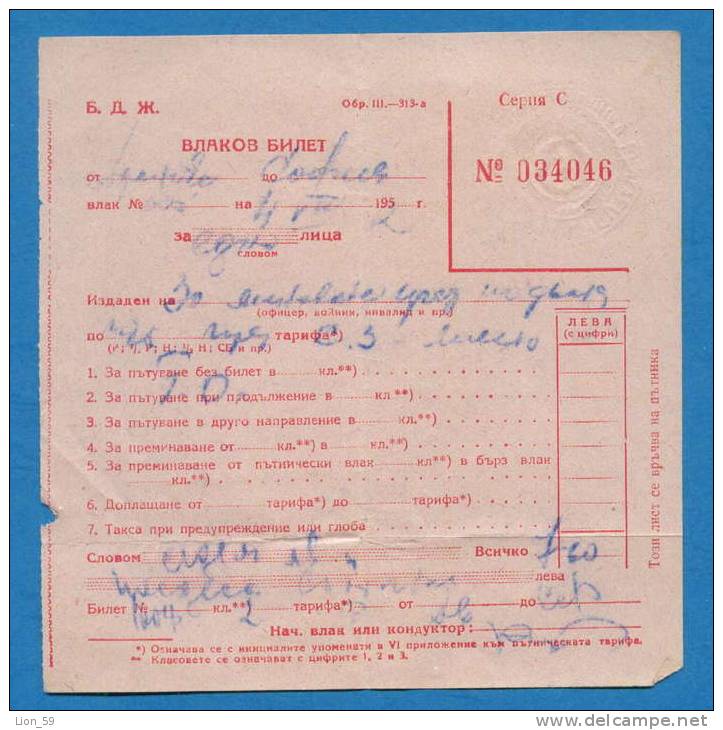 Б. Д. Ж.
Обр. III.—313-а
Серия С
№ 034046
ВЛАКОВ БИЛЕТ
от до София
влак № на 4 VII 1952 г.
за едно лица
словом
Издаден на За
(офицер, войник, инвалид и пр.)
по тарифа*)
(Р; Ч, Р; Н; Ц, Н; СБ и пр.)
ЛЕВА
(с цифри)
1. За пътуване без билет в кл.**)
2. За пътуване при продължение в кл.**)
3. За пътуване в друго направление в кл.**)
4. За преминаване от кл.**) в кл.**)
5. За преминаване от пътнически влак кл.**) в бърз влак
кл.**)
6. Доплащане от тарифа*) до тарифа*)
7. Такса при предупреждение или глоба
Словом седем лв. Всичко 7-60
лева
Билет № кл.** 2 тарифа*) от до
Нач. влак или кондуктор:
*) Означава се с инициалите упоменати в VI приложение към пътническата тарифа.
** Класовете се означават с цифрите 1, 2 и 3.
Този лист се връчва на пътника
Lion_59
www.delcampe.net